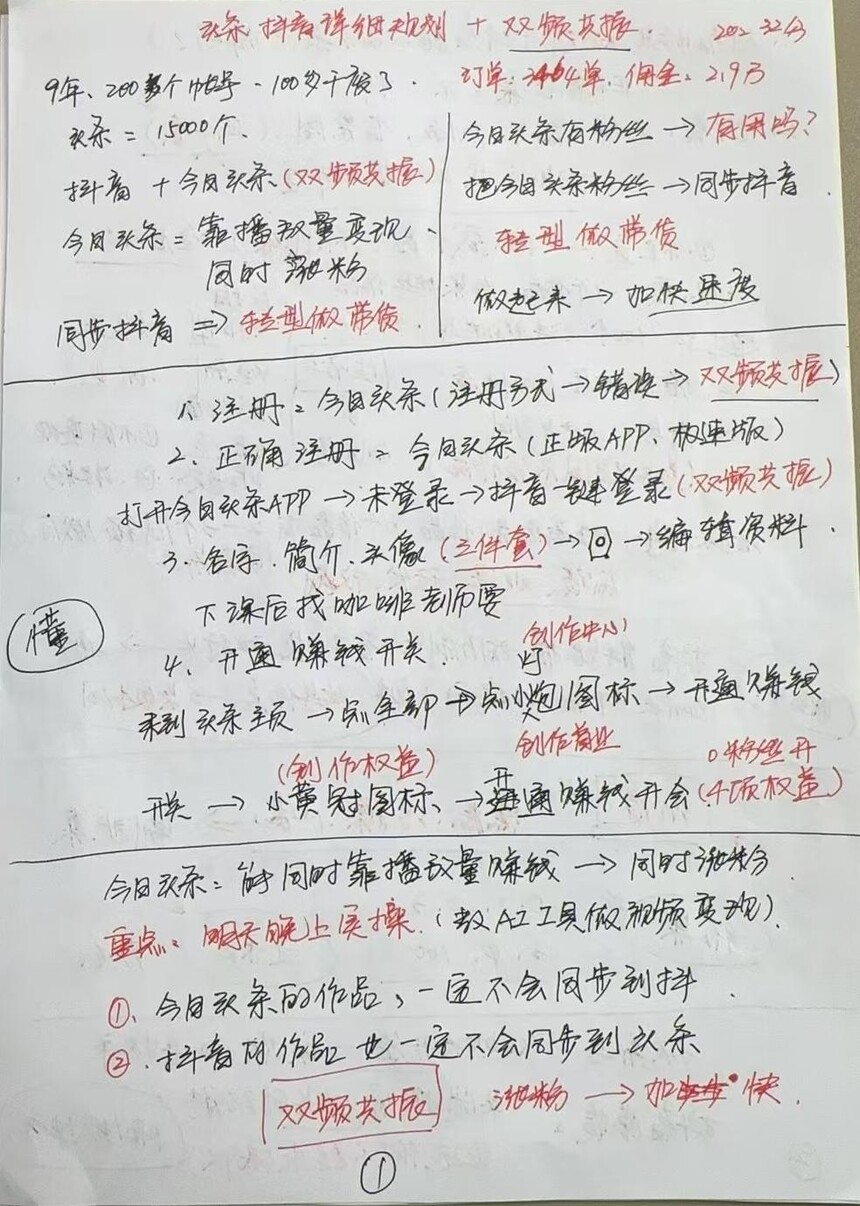 头条 抖音详细规划 + 双频共振.
订单:3464单,佣金:2.9万
9年、200多个账号、100多个废了.
头条 = 15000个.
抖音 + 今日头条(双频共振)
今日头条 = 靠播放量变现、
同时涨粉
同步抖音 => 转型做带货.
今日头条有粉丝 → 有用吗?
把今日头条粉丝 → 同步抖音.
转型做带货
做起来 → 加快速度
1、注册:今日头条(注册方式 → 错误 → 双频共振)
2、正确注册:今日头条(正版APP、极速版)
打开今日头条APP → 未登录 → 抖音一键登录(双频共振)
3、名字、简介、头像(三件套) → → 编辑资料.
下课后找咖啡老师要
懂
4、开通赚钱开关.
创作中心
灯
来到头条主页 → 点全部 → 点小炮图标 → 开通赚钱
(创作权益)
创作首业
0粉丝开
开关 → 小黄冠图标、→ 开通赚钱开会(4项权益)
今日头条:能同时靠播放量赚钱 → 同时涨粉.
重点:明天晚上实操.(教AI工具做视频变现).
①、今日头条的作品,一定不会同步到抖.
②.抖音的作品也一定不会同步到头条
双频共振 涨粉 → 加快.
①